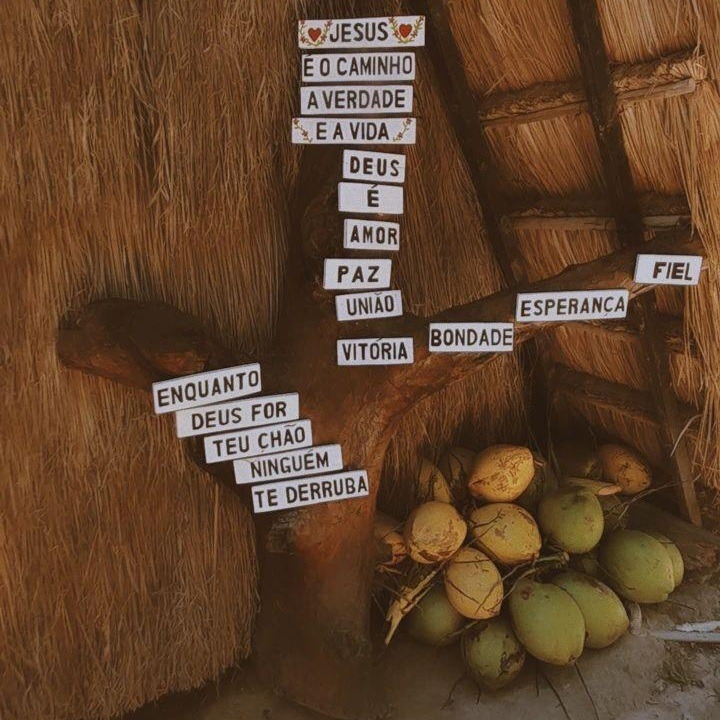 JESUS
É O CAMINHO
A VERDADE
E A VIDA
DEUS
É
AMOR
PAZ
UNIÃO
VITÓRIA
BONDADE
ESPERANÇA
FIEL
ENQUANTO
DEUS FOR
TEU CHÃO
NINGUÉM
TE DERRUBA